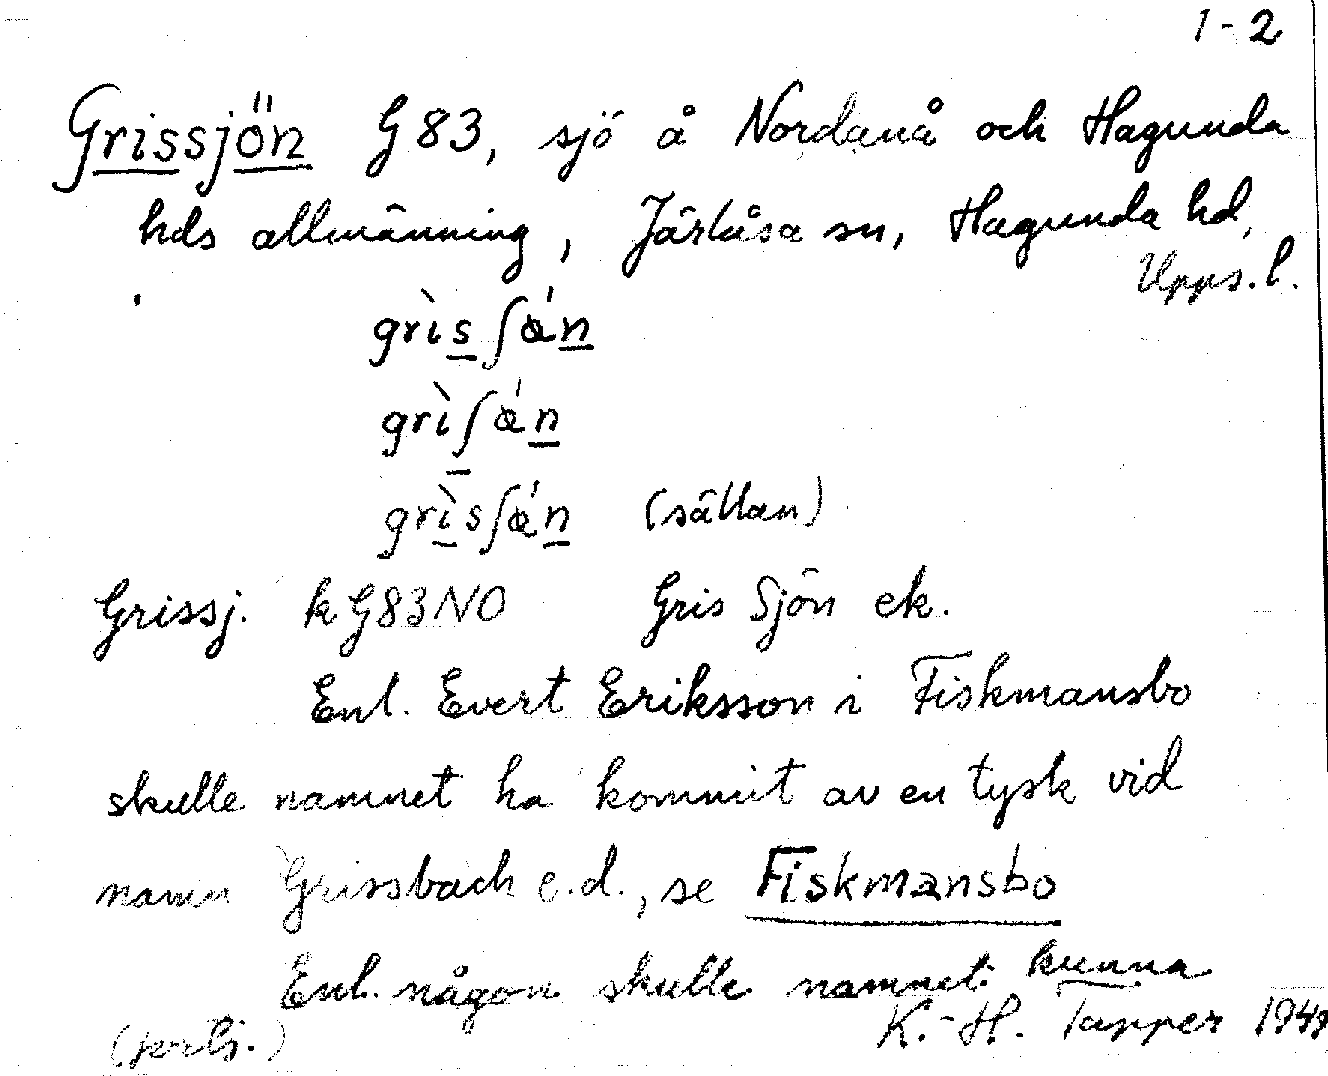 1-2
Grissjön G83, sjö å Nordanå och Hagunda
hds allmänning, Järlåsa sn, Hagunda hd,
Upps. l.
grìsʃǿn
grìʃǿn
grìsʃǿn (sällan)
Grissj. kG83NO Gris Sjön ek.
Enl. Evert Eriksson i Fiskmansbo
skulle namnet ha kommit av en tysk vid
namn Grissbach e.d., se Fiskmansbo
Enl. någon skulle namnet kunna
(forts.) K.-H. Tapper 1949